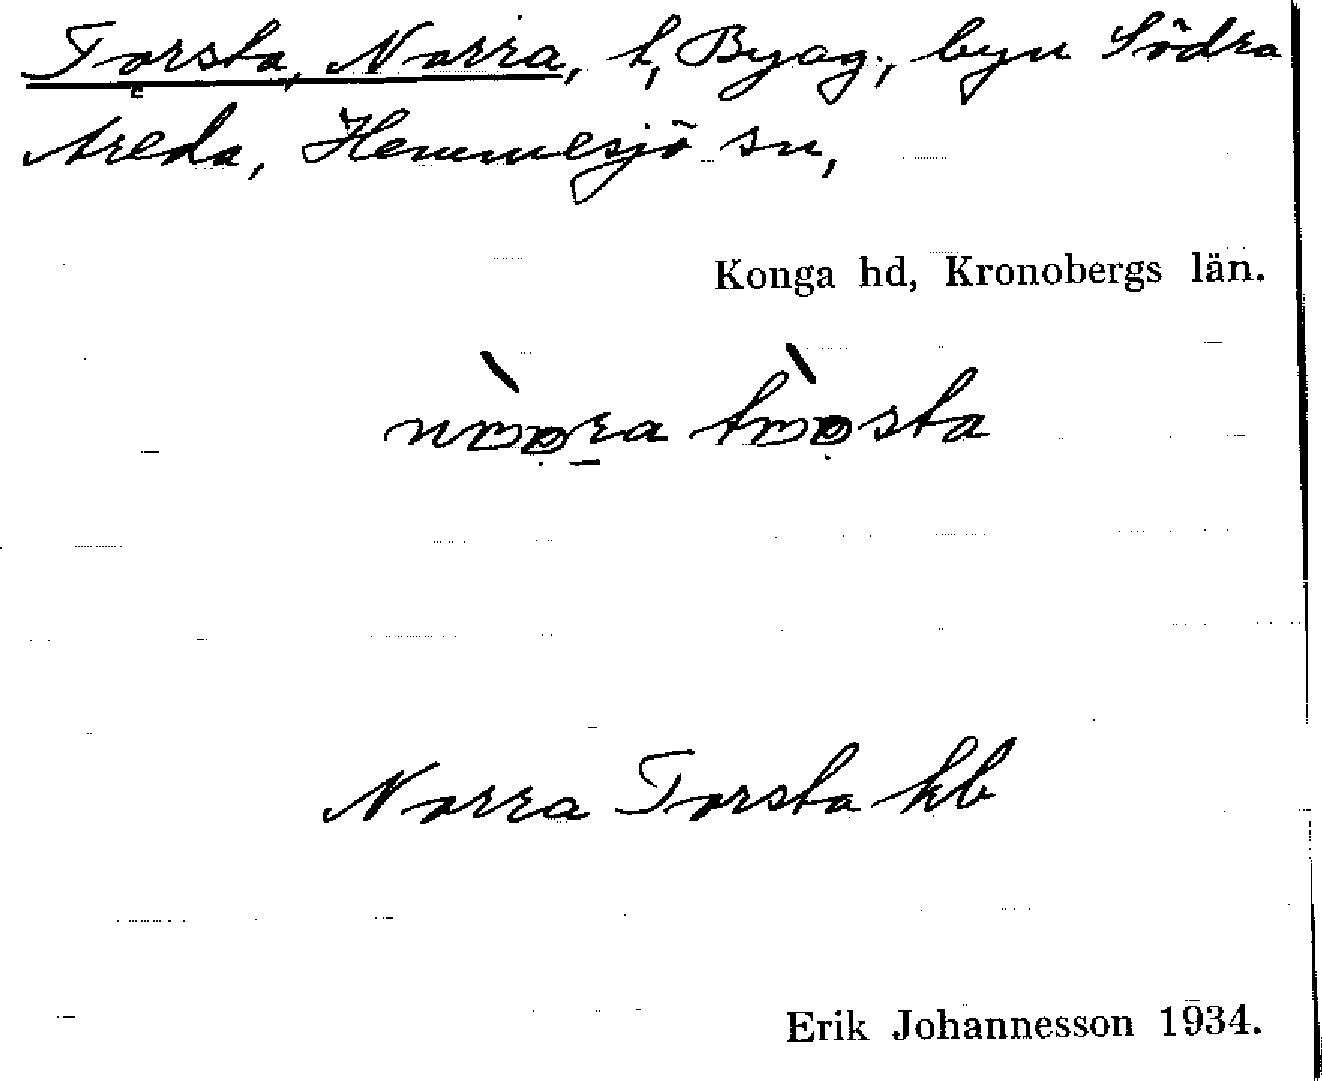 Torsta, Norra, t, Byag., byn Södra
Areda, Hemmesjö sn,
Konga hd, Kronobergs län.
Norra Torsta kb
Erik Johannesson 1934.